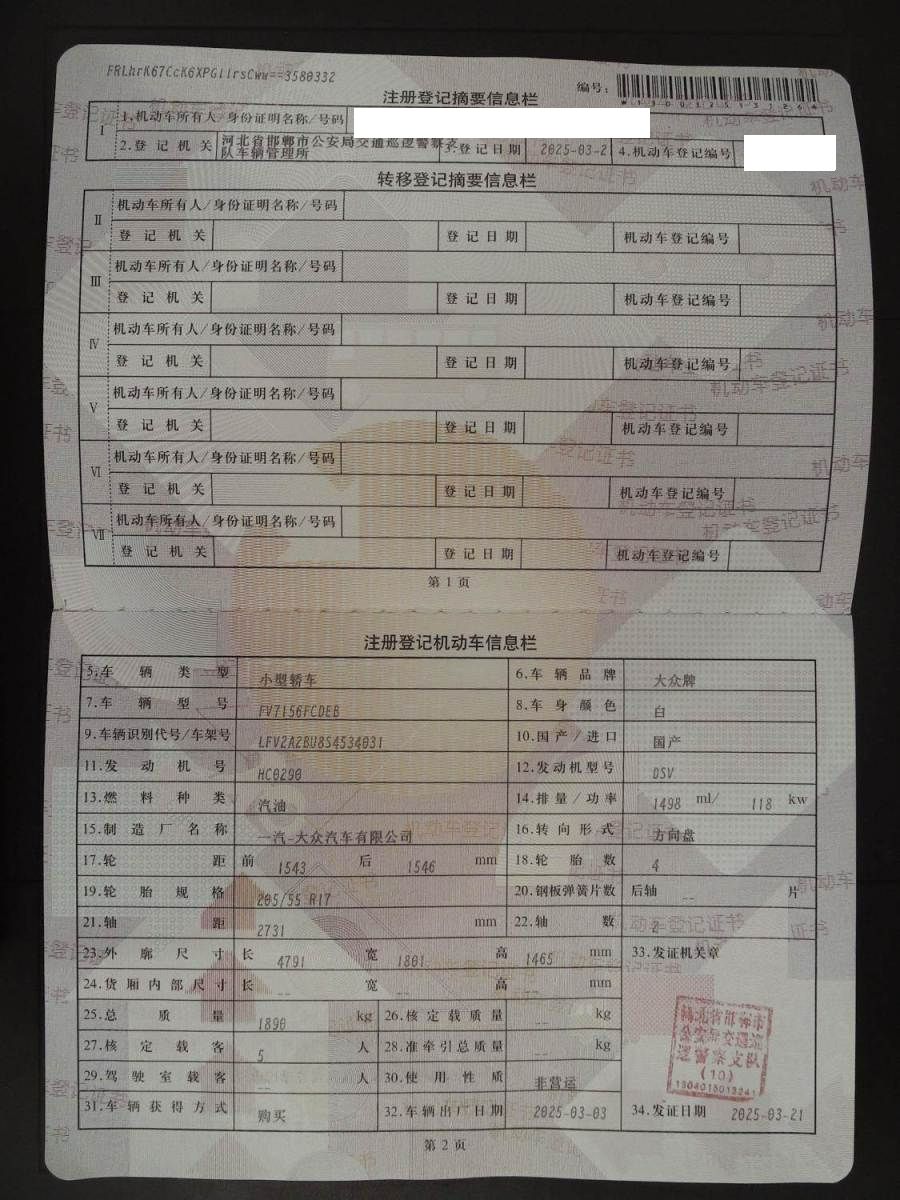 FRLhrK67CcK6XPGilrsCww==3580332
编号：
注册登记摘要信息栏
I
1.机动车所有人/身份证明名称/号码
2.登记机关 河北省邯郸市公安局交通巡逻警察支队车辆管理所 3.登记日期 2025-03-21 4.机动车登记编号
转移登记摘要信息栏
II 机动车所有人/身份证明名称/号码
登记机关 登记日期 机动车登记编号
III 机动车所有人/身份证明名称/号码
登记机关 登记日期 机动车登记编号
IV 机动车所有人/身份证明名称/号码
登记机关 登记日期 机动车登记编号
V 机动车所有人/身份证明名称/号码
登记机关 登记日期 机动车登记编号
VI 机动车所有人/身份证明名称/号码
登记机关 登记日期 机动车登记编号
VII 机动车所有人/身份证明名称/号码
登记机关 登记日期 机动车登记编号
第 1 页
注册登记机动车信息栏
5.车辆类型 小型轿车 6.车辆品牌 大众牌
7.车辆型号 FV7156FCDEB 8.车身颜色 白
9.车辆识别代号/车架号 LFV2A2BU8S4534031 10.国产/进口 国产
11.发动机号 HC0290 12.发动机型号 DSV
13.燃料种类 汽油 14.排量/功率 1498 ml/ 118 kw
15.制造厂名称 一汽-大众汽车有限公司 16.转向形式 方向盘
17.轮距 前 1543 后 1546 mm 18.轮胎数 4
19.轮胎规格 205/55 R17 20.钢板弹簧片数 后轴 -- 片
21.轴距 2731 mm 22.轴数 2
23.外廓尺寸 长 4791 宽 1801 高 1465 mm 33.发证机关章
24.货厢内部尺寸 长 -- 宽 -- 高 -- mm
25.总质量 1890 kg 26.核定载质量 -- kg
27.核定载客 5 人 28.准牵引总质量 -- kg
29.驾驶室载客 -- 人 30.使用性质 非营运
31.车辆获得方式 购买 32.车辆出厂日期 2025-03-03 34.发证日期 2025-03-21
河北省邯郸市
公安局交通巡
逻警察支队
(10)
第 2 页